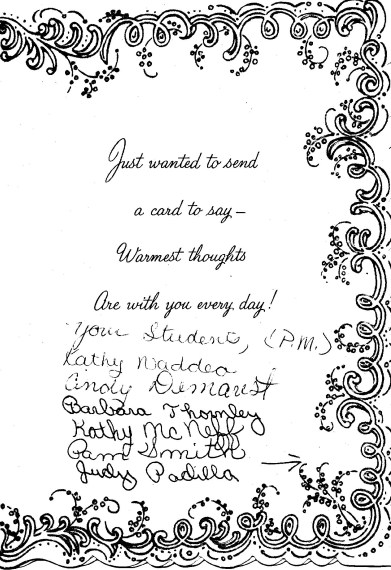 Just wanted to send
a card to say—
Warmest thoughts
Are with you every day!
Your Student, (P.M.)
Kathy Maddea
Cindy Demarest
Barbara Thornley
Kathy McNeff
Pam Smith
Judy Padilla